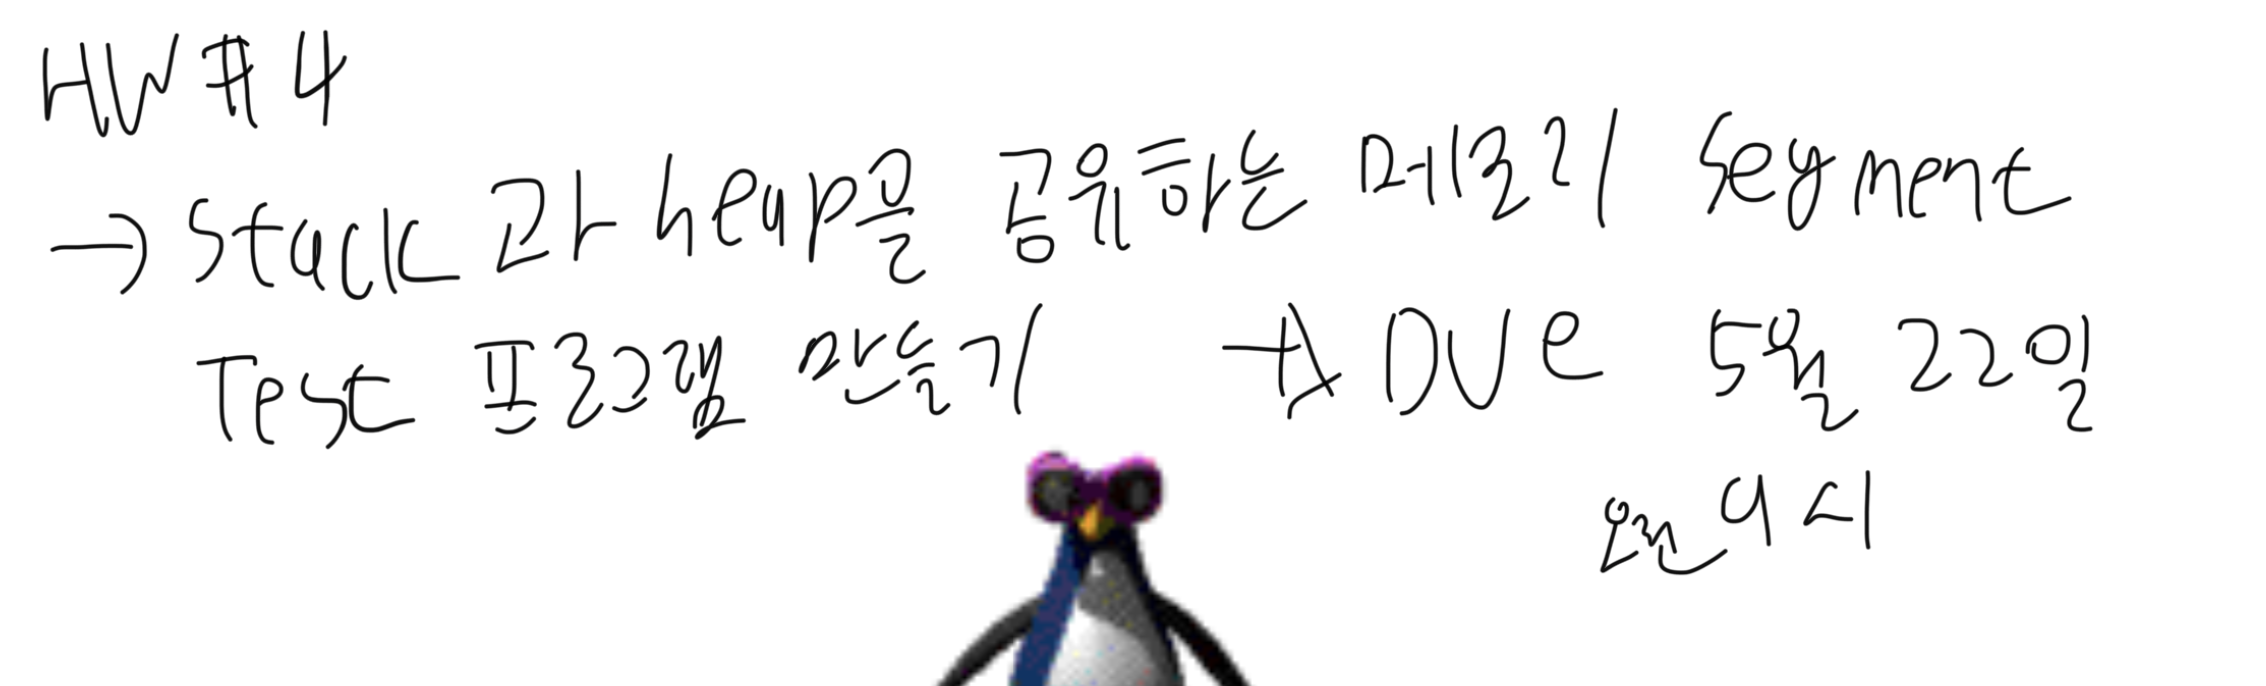 HW #4
→ Stack과 heap을 공유하는 메모리 Segment
Test 프로그램 만들기 → DUe 5월 22일
오전 9시